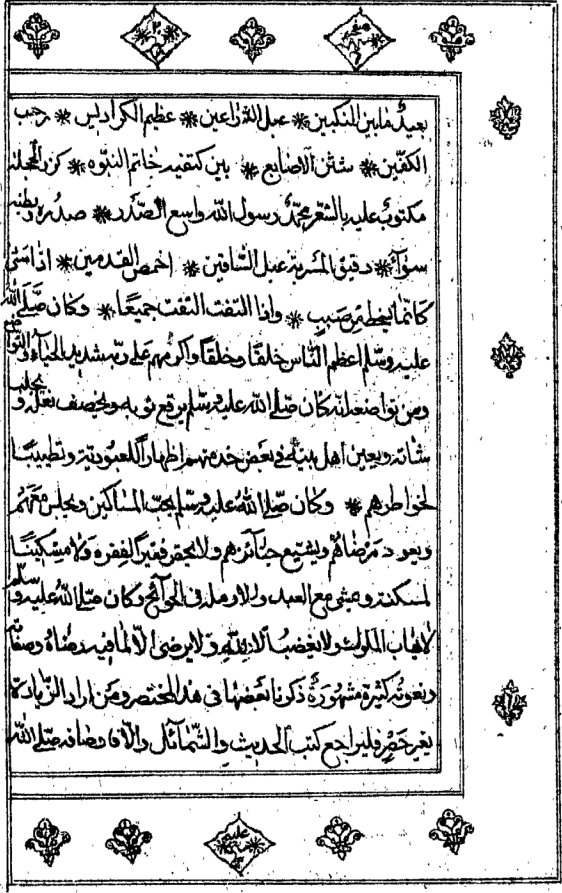 بعيدٌ مابين المنكبين * عبل الذراعين * عظيم الكراديس * رحب
الكفّين * شثن الاصابع * بين كتفيه خاتم النبّوه * كزر الحجلة
مكتوبٌ عليه بالشعر محمّدٌ رسول اللّه واسع الصّدر * صدره وبطنه
سوآءٌ * دقيق المسربة عبل السّاقين * اخمص القدمين * اذا مشى
كانّما ينحط من صببٍ * واذا التفت التفت جميعًا * وكان صلّى اللّه
عليه وسلّم اعظم النّاس خلقًا وخلقًا واكرمهم على ربّه شديد الحيآء والتواضع
ومن تواضعه انّه كان صلّى اللّه عليه وسلّم يرقع ثوبه ويخصف نعله ويحلب
شاته ويعين اهل بيته فى بعض خدمتهم اظهارًا للعبوديّة وتطييبًا
لخواطرهم * وكان صلّى اللّهُ عليه وسلّم يحبّ المساكين ويجلس معهُم
ويعود مرضاهُم ويشيّع جنآئزهم ولا يحقر فقيرًا لفقره وَلا مسكينًا
لمسكنته ويمشى مع العبد والارملة فى الحوآئج وكان صلّى اللّهُ عليه وسلّم
لا يهاب الملوك ولا يغضبُ الّا للّهِ ولا يرضى الّا لما فيه رضَاهُ وصفاته
ونعوته كثيرة مشهُورَةٌ ذكرنا بَعْضهُا فى هذا المختصر ومَن اراد الزّيادة
بغير حَصْرٍ فليراجع كتب الحديث والشّمآئل والّافاوصافه صلّى اللّه